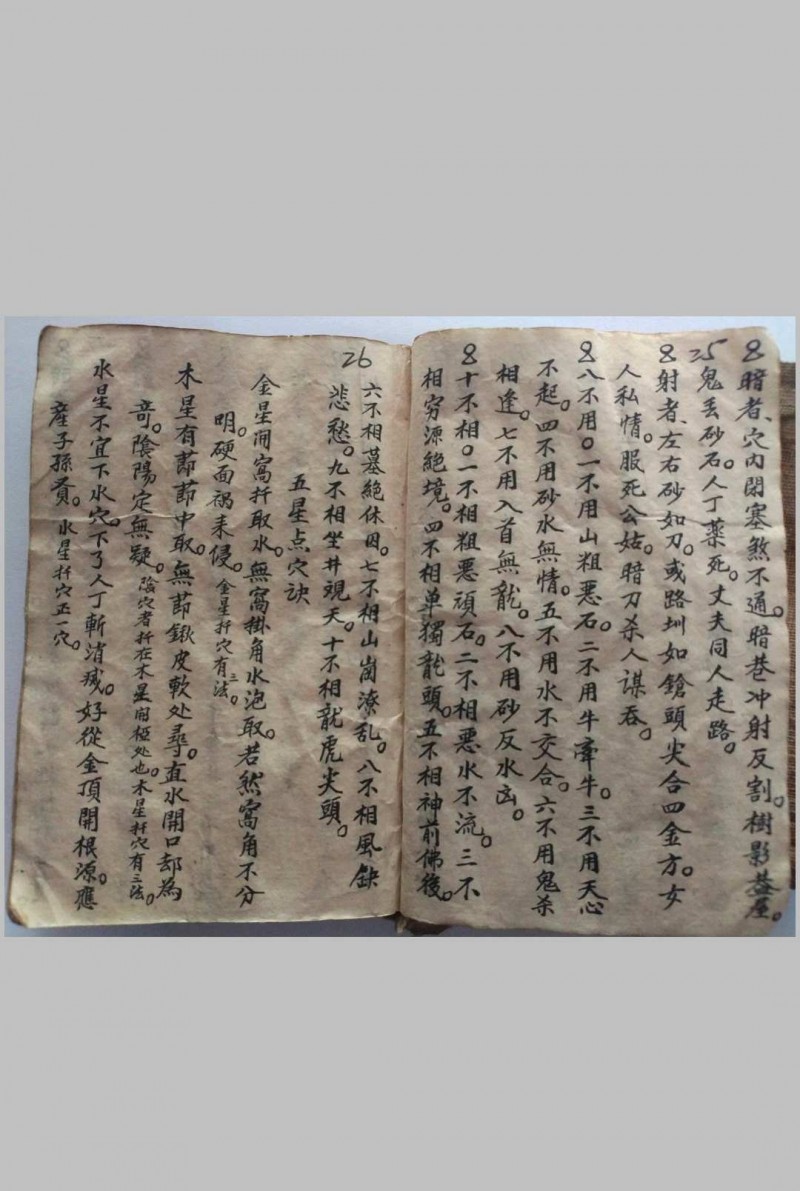 8暗者、穴内閉塞煞不通。暗巷冲射反割。樹影蓋屋。
25鬼丢砂石。人丁藥死。丈夫同人走路。
8射者、左右砂如刀。或路圳如鎗頭尖合四金方。女
人私情。服死公姑。暗刀杀人谋吞。
8八不用。一不用山粗恶石。二不用牛牽牛。三不用天心
不起。四不用砂水無情。五不用水不交合。六不用鬼杀
相逢。七不用入首無龍。八不用砂反水凶。
8十不相。一不相粗悪頑石。二不相悪水不流。三不
相穷源絶境。四不相单獨龍頭。五不相神前佛後。
26
六不相墓絶休囚。七不相山崗潦乱。八不相風缺
悲愁。九不相坐井覌天。十不相龍虎尖頭。
五星点穴訣
金星開窩扦取水。無窩掛角水泡取。若然窩角不分
明。硬面禍来侵。金星扦穴有三法。
木星有莭莭中取。無莭鍬皮軟处尋。直水開口却為
奇。隂陽定無疑。隂穴者扦在木星府極处也。木星扦穴有三法。
水星不宜下水穴。下了人丁斬消㓕。好從金頂開根源。應
産子孫賁。水星扦穴正一穴。